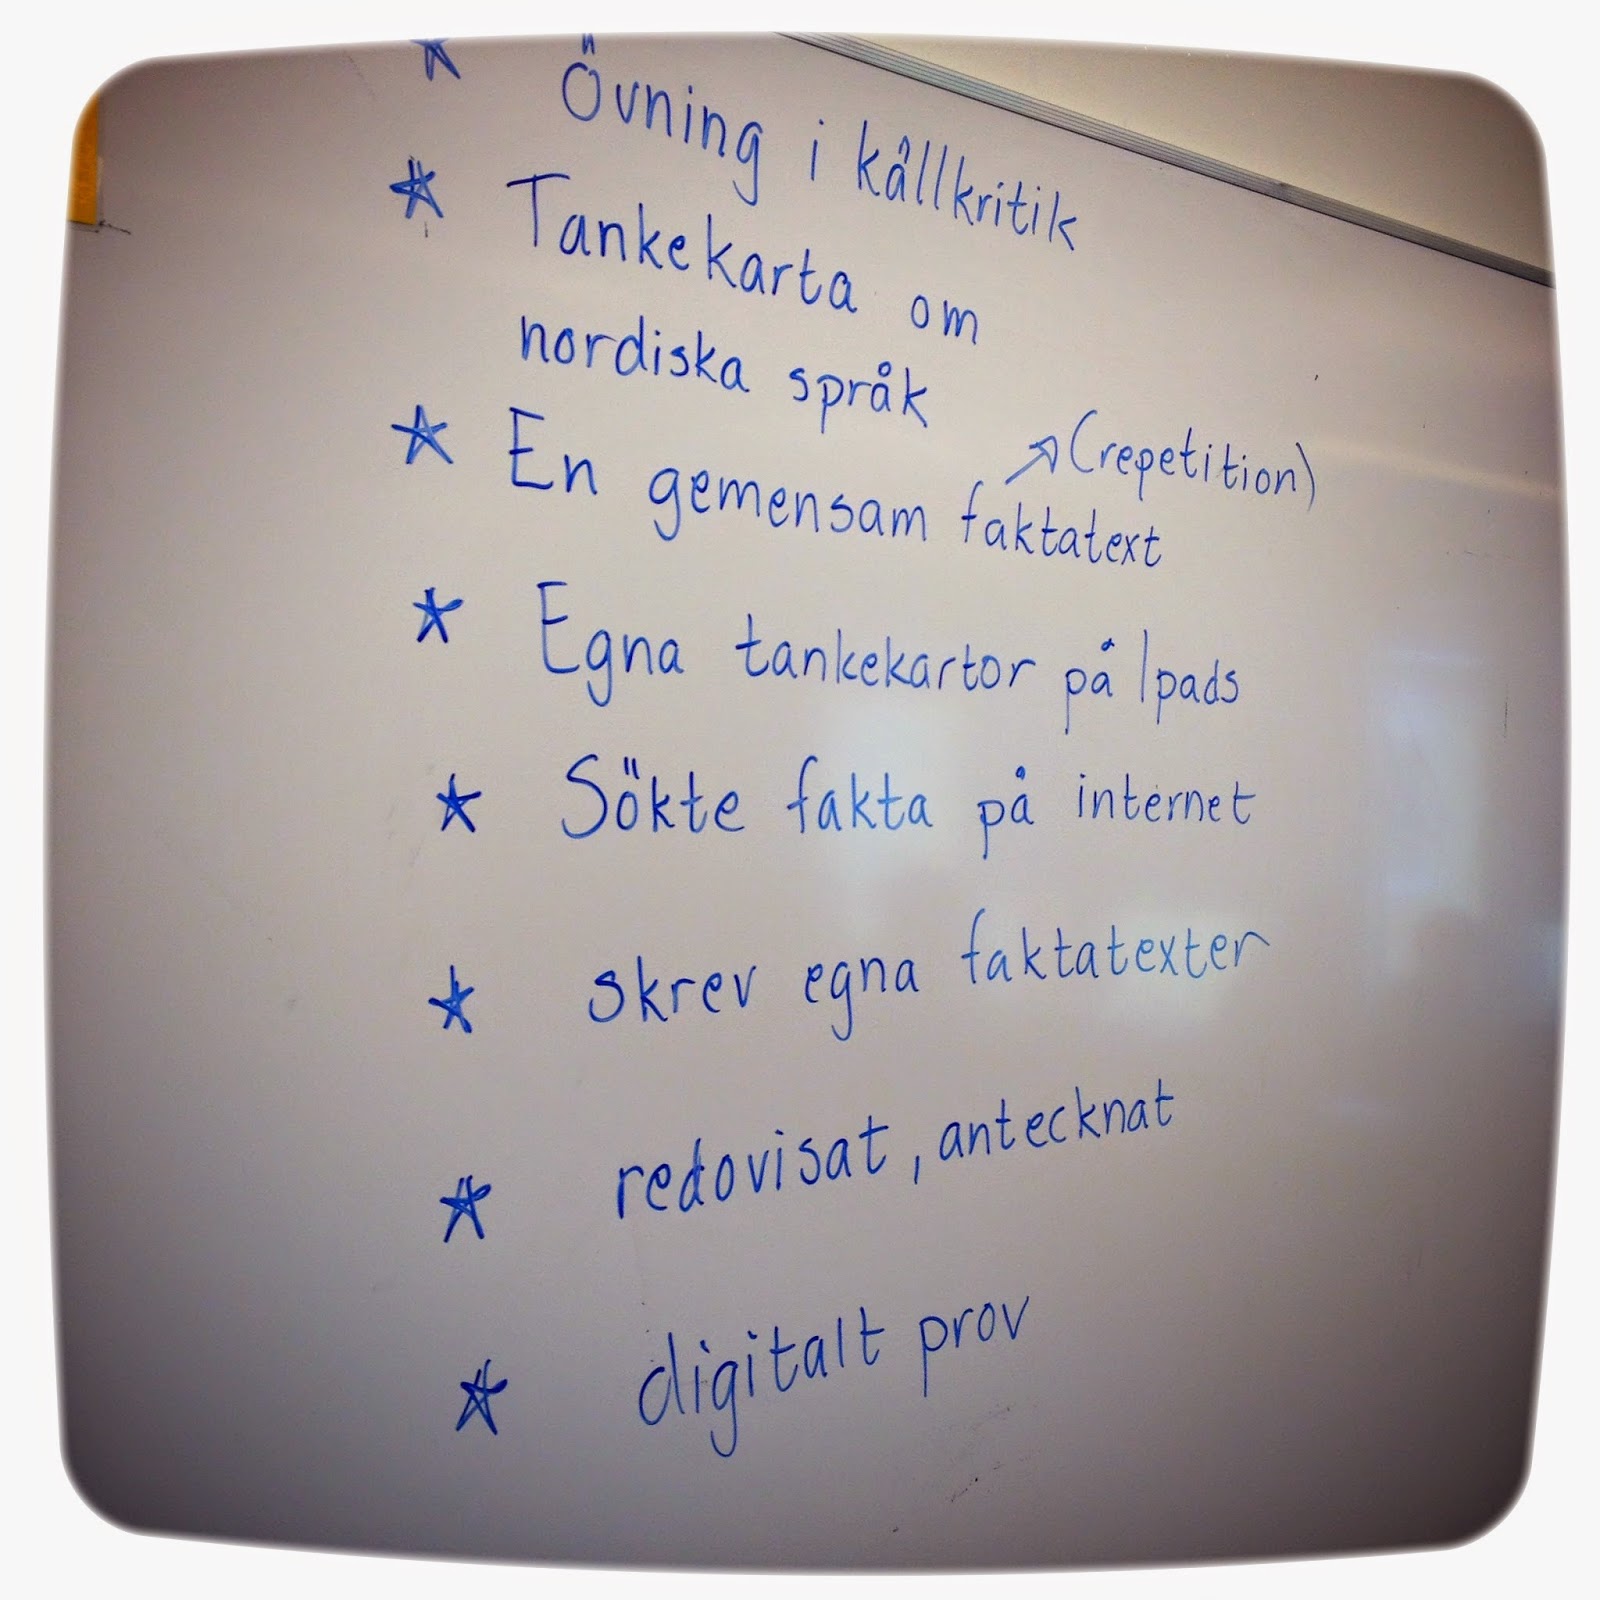 Övning i källkritik
Tankekarta om
nordiska språk
(repetition)
En gemensam faktatext
Egna tankekartor på Ipads
Sökte fakta på internet
skrev egna faktatexter
redovisat, antecknat
digitalt prov